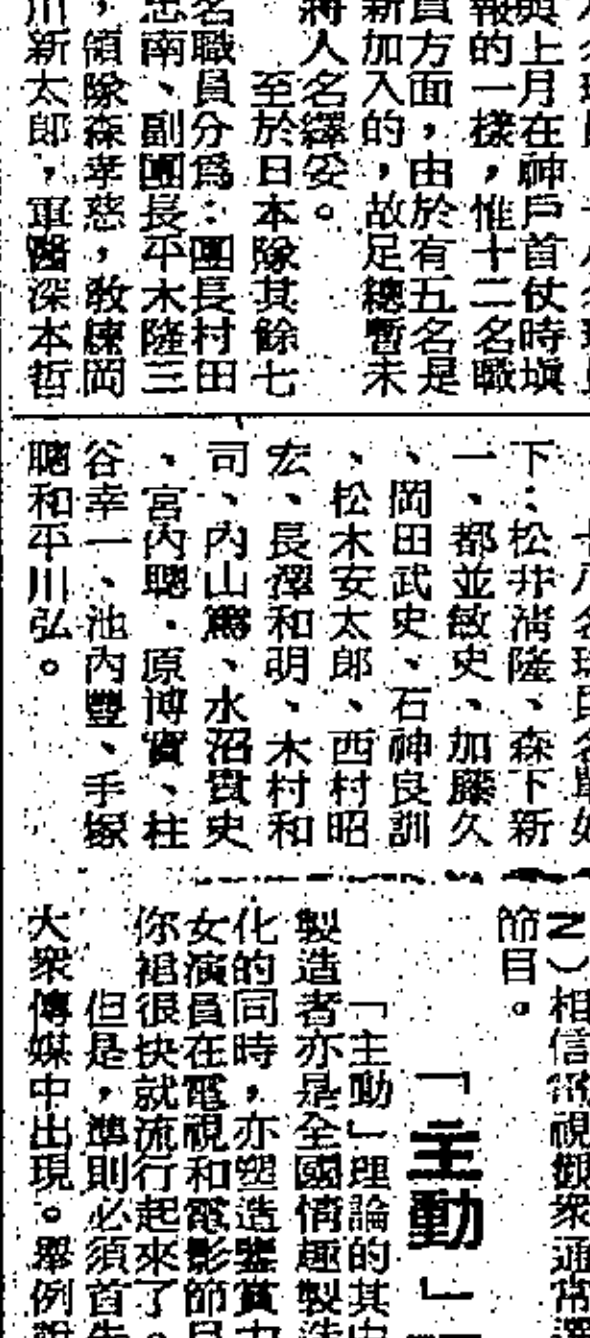 與上月在神戶首仗時塡
報的一樣，惟十二名職
員方面，由於有五名是
新加入的，故足總暫未
將人名繹妥。
至於日本隊其餘七
名職員分爲：團長村田
忠南、副團長平木隆三
，領隊森孝慈，敎練岡
川新太郎，軍醫深本哲
十八名球員名單如
下：松井淸隆、森下新
一、都並敏史、加藤久
、岡田武史、石神良訓
、松木安太郎、西村昭
宏、長澤和明、木村和
司、內山篤、水沼貴史
、宮內聰．原博實、柱
谷幸一、池內豐、手塚
聰和平川弘。
N）相信電視觀衆通常選
節目。
「主動」
「主動」理論的其中
製造者亦是全國情趣製造
化的同時，亦塑造鑒賞力
女演員在電視和電影節目
你裙很快就流行起來了。
但是，準則必須首先
大衆傳媒中出現。舉例說